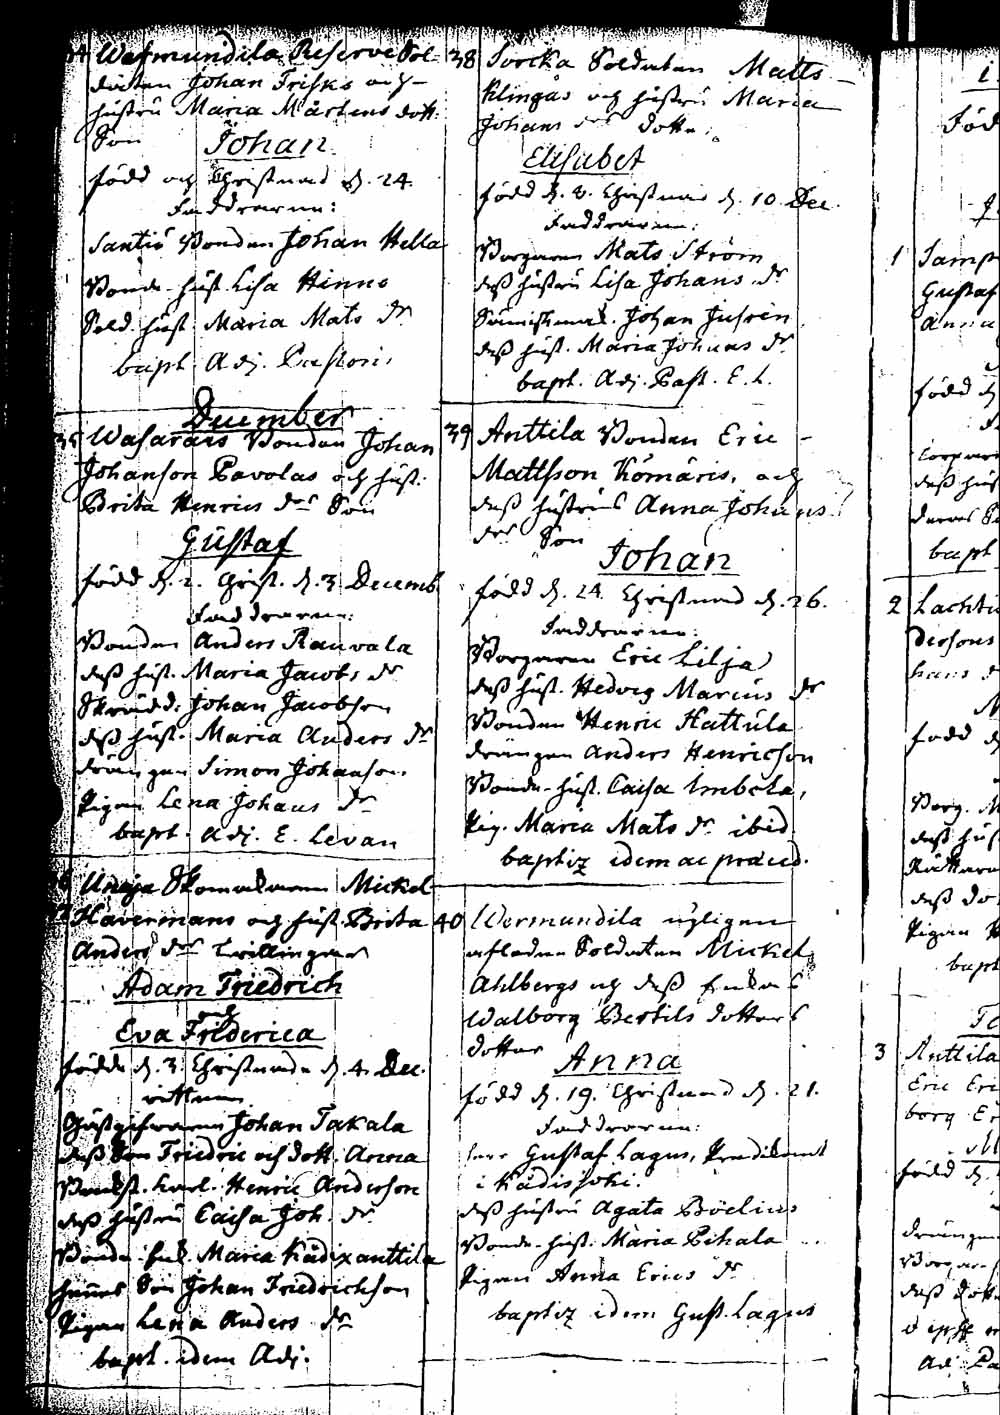 34 Wermundila Reserve Sol-
daten Johan Frisks och
hustru Maria Mårtens dott.
Son Johan
född och Christnad d. 24.
Faddrarne:
Santio Bonden Johan Hella
Bonde hust. Lisa Hinno
Sold. hust. Maria Mats dr
bapt. Adj. Pastoris
December
35 Wasarais Bonden Johan
Johanson Pavolas och hust.
Brita Henrics drs Son
Gustaf
född d. 2. Christ. d. 3 Decemb.
Faddrarne:
Bonden Anders Rauvala
dess hust. Maria Jacobs dr
Skrädd. Johan Jacobsson
dess hust. Maria Anders dr
drängen Simon Johansson
Pigan Lena Johans dr
bapt. Adj. E. Levan
Skomakaren Mickel
Håvermans och hust. Brita
Anders drs tvillingar
Adam Friedrich
och
Eva Friderica
födde d. 3. Christnade d. 4. Dec.
vittnen
Gästgifvaren Johan Takala
dess Son Friedric och dott. Anna
Henric Anderson
dess hustru Caisa Joh. dr
Bonde hust. Maria Kädixanttila
hennes Son Johan Friedrichson
Pigan Lena Anders dr
bapt. idem Adj.
38 Sorcka Soldaten Matts
Klingas och hustru Maria
Johans drs dotter
Elisabet
född d. 8. Christnad d. 10 Dec.
Faddrarne:
Borgaren Mats Ström
dess hustru Lisa Johans dr
Johan Jusren
dess hust. Maria Johans dr
bapt. Adj. Past. E. L.
39 Anttila Bonden Eric
Mattsson Kömäris, och
dess hustrus Anna Johans
drs Son Johan
född d. 24. Christnad d. 26.
Faddrarne:
Borgaren Eric Lilja
dess hust. Hedvig Marcus dr
Bonden Henric Kattula
drängen Anders Henricson
Bonde hust. Caisa Imbela,
Pig. Maria Mats dr ibid
baptiz idem ac præced.
40 Wermundila nyligen
afledne Soldaten Mickel
Ahlbergs och dess Enkas
Walborg Bertils dotters
dotter Anna
född d. 19. Christnad d. 21.
Faddrarne:
Herr Gustaf Lagus, Predikant
i Kadisjoki.
dess hustru Agata Böelius
Bonde hust. Maria Pikala
Pigan Anna Erics dr
baptiz idem Gust. Lagus
1
Gustaf
Anna
född d.
dess hust
bapt
2 Lachti
född d
Borg. M
dess hus
dess do
Pigan
bapt
3 Anttila
Eric Eri
borg Er
född d.
dränge
Borgar